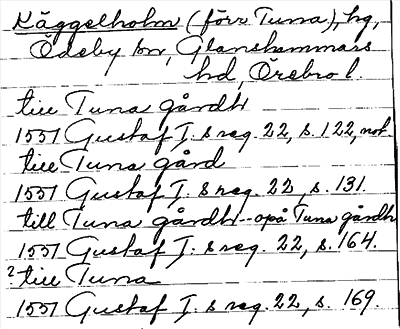 Käggelholm (förr Tuna), hg,
Ödeby sn, Glanshammars
hd, Örebro l.
till Tuna gårdh
1551 Gustaf I:s reg. 22, s. 122, not.
till Tuna gård
1551 Gustaf I:s reg. 22, s. 131.
till Tuna gårdh - opå Tuna gårdh
1551 Gustaf I:s reg. 22, s. 164.
? till Tuna
1551 Gustaf I:s reg. 22, s. 169.